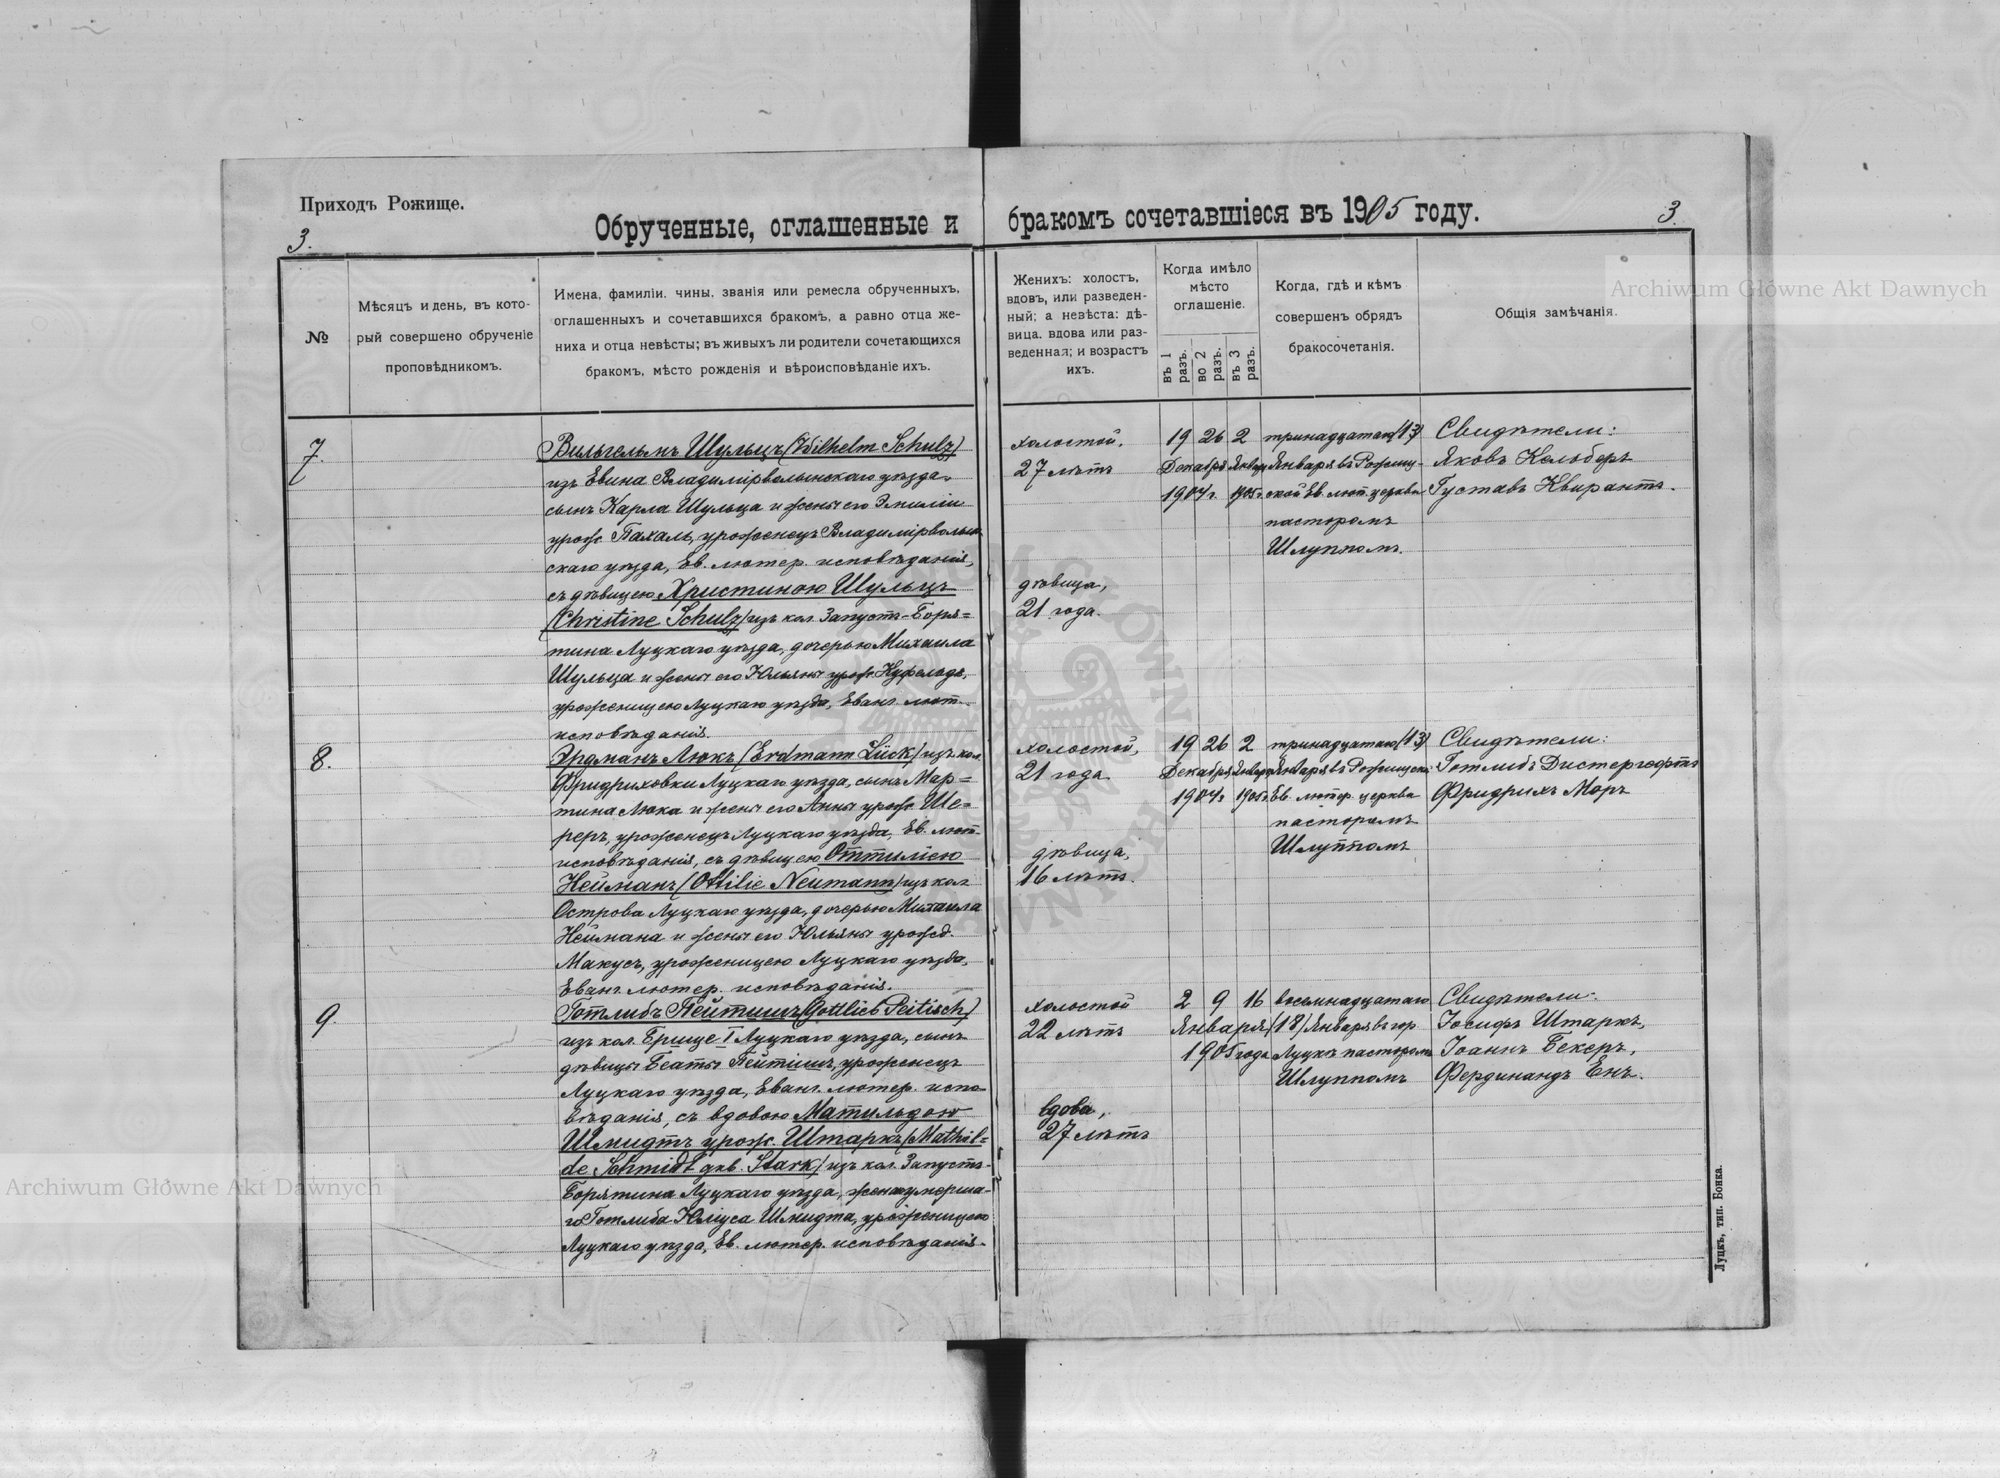 Приходъ Рожище.
3.
Обрученные, оглашенные и
бракомъ сочетавшіеся въ 1905 году.
3.
№
Мѣсяцъ и день, въ кото-
рый совершено обрученіе
проповѣдникомъ.
Имена, фамиліи, чины, званія или ремесла обрученныхъ,
оглашенныхъ и сочетавшихся бракомъ, а равно отца же-
ниха и отца невѣсты; въ живыхъ ли родители сочетающихся
бракомъ, мѣсто рожденія и вѣроисповѣданіе ихъ.
Женихъ: холостъ,
вдовъ, или разведен-
ный; а невѣста: дѣ-
вица, вдова или раз-
веденная; и возрастъ
ихъ.
Когда имѣло
мѣсто
оглашеніе.
въ 1 разъ.
во 2 разъ.
въ 3 разъ.
Когда, гдѣ и кѣмъ
совершенъ обрядъ
бракосочетанія.
Общія замѣчанія.
7.
Вильгельмъ Шульцъ (Wilhelm Schulz)
изъ Евина Владимірволынскаго уѣзда,
сынъ Карла Шульца и жены его Эмиліи
урож. Пахаль, уроженецъ Владимірволын
скаго уѣзда, Ев. лютер. исповѣданія,
съ дѣвицею Христиною Шульцъ
(Christine Schulz) изъ кол. Запустъ-Боря=
тина Луцкаго уѣзда, дочерью Михаила
Шульца и жены его Юльяны урож. Куфельдъ,
уроженицею Луцкаго уѣзда, Еванг. лют.
исповѣданія.
холостой,
27 лѣтъ
дѣвица,
21 года.
19 26 2
Декабря Января
1904 г. 1905 г.
тринадцатаго (13)
Января въ Рожищ-
ской Ев. лют. церкви
пасторомъ
Шлуппомъ.
Свидѣтели:
Яковъ Кельберъ
Густавъ Квирантъ.
8.
Эрдманъ Люкъ (Erdmann Lück) изъ кол.
Фридриховки Луцкаго уѣзда, сынъ Мар=
тина Люка и жены его Анны урож. Ше=
реръ, уроженецъ Луцкаго уѣзда, Ев. лют.
исповѣданія, съ дѣвицею Оттилією
Нейманъ (Ottilie Neumann) изъ кол.
Острова Луцкаго уѣзда, дочерью Михаила
Неймана и жены его Юльяны урожд.
Макусъ, уроженицею Луцкаго уѣзда,
Еванг. лютер. исповѣданія.
холостой,
21 года
дѣвица,
16 лѣтъ.
19 26 2
Декабря Января
1904 г. 1905 г.
тринадцатаго (13)
Января въ Рожищской
Ев. лютер. церкви
пасторомъ
Шлуппомъ
Свидѣтели:
Готлибъ Дистергофтъ
Фридрихъ Моръ
9.
Готлибъ Пейтишъ (Gottlieb Peitisch)
изъ кол. Брище I Луцкаго уѣзда, сынъ
дѣвицы Беаты Пейтишъ, уроженецъ
Луцкаго уѣзда, Еванг. лютер. испо
вѣданія, съ вдовою Матильдою
Шмидтъ урож. Штаркъ (Mathil=
de Schmidt geb. Stark) изъ кол. Запустъ-
Борятина Луцкаго уѣзда, жена умерша-
го Готлиба Юліуса Шмидта, уроженицею
Луцкаго уѣзда, Ев. лютер. исповѣданія.
холостой
22 лѣтъ
вдова,
27 лѣтъ
2 9 16
Января
1905 года
восемнадцатаго
(18) Января въ гор.
Луцкѣ пасторомъ
Шлуппомъ
Свидѣтели:
Іосифъ Штаркъ,
Іоаннъ Бекеръ,
Фердинандъ Енъ.
Луцкъ, тип. Бонка.
Archiwum Główne Akt Dawnych
Archiwum Główne Akt Dawnych